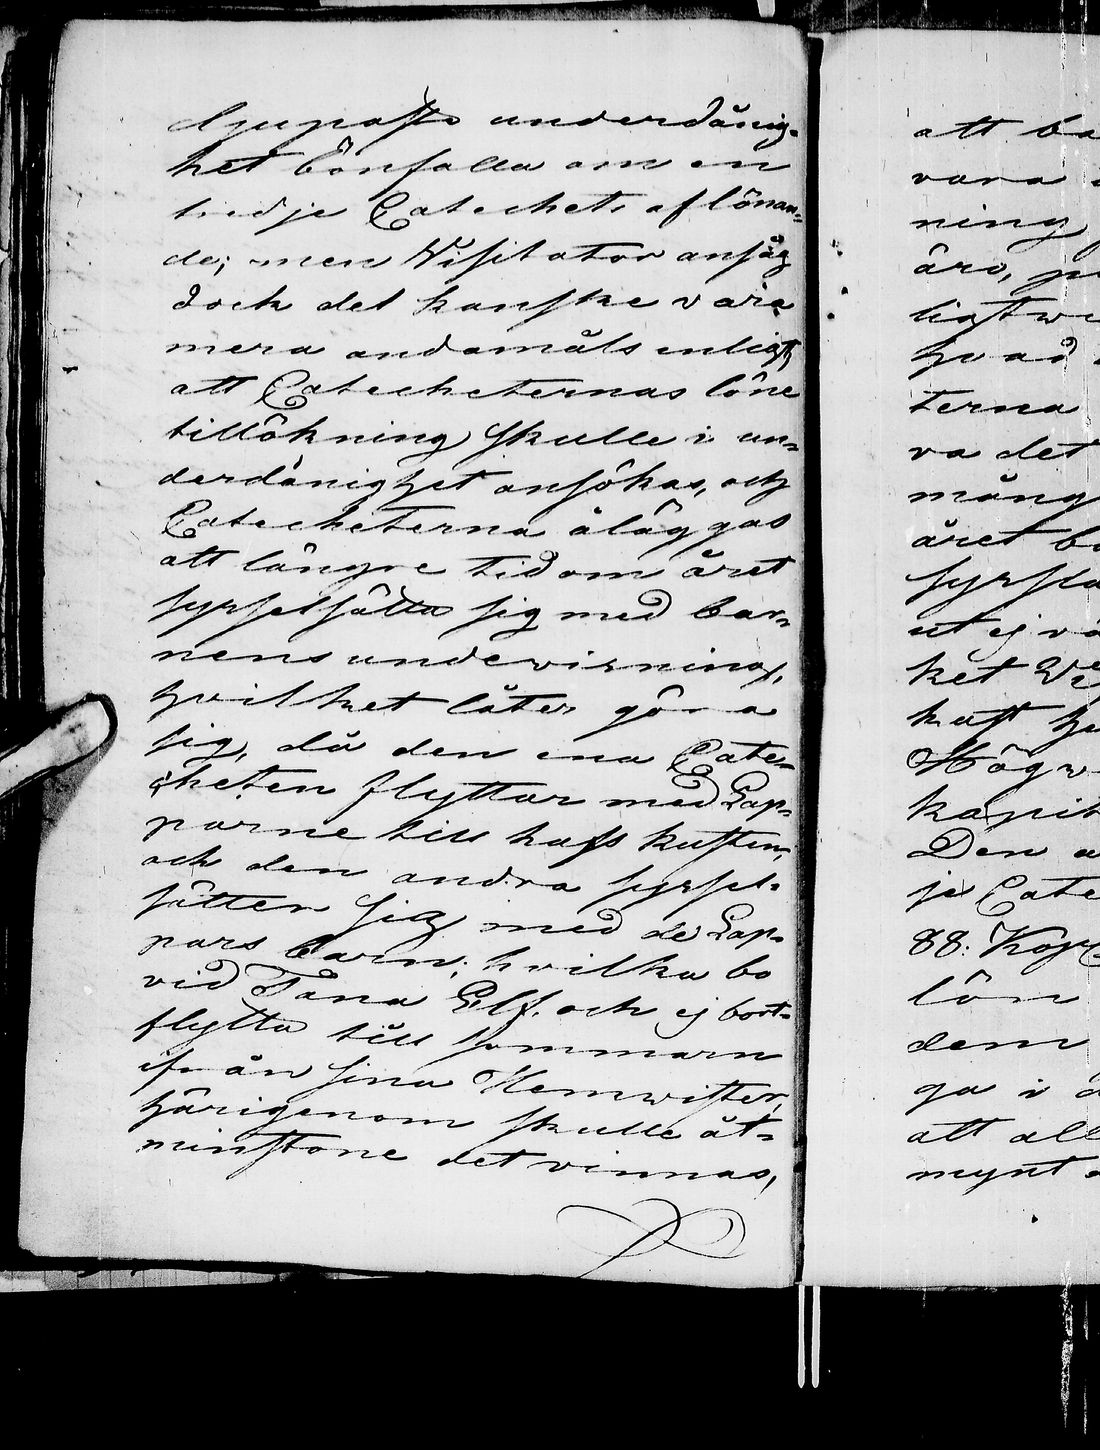 djupaste underdånig-
het bönfalla om en
tredje Catechets aflönan-
de; men Visitator ansåg
dock det kanske vara
mera andamåls enligt,
att Catecheternas löne
tillökning skulle i un-
derdånighet ansökas, och
Catecheterna åläggas
att längre tid om året
sysselsätta sig med bar-
nens undervisning,
hvilket låter göra
sig, då den ena Cate-
cheten flyttar med Lap-
parne till hafs kusten,
och den andra syssel-
sätter sig med de Lap-
pars barn, hvilka bo
vid Tana Elf. och ej bort-
flytta till sommarn
ifrån sina Hemwister,
härigenom skulle åt-
minstone det vinnas,
att ba
vara
ning
äro, p
ligtwi
hvad
terna
va det
mång
året b
syssla
ut ej va
ket We
haft h
Högw
kapit
Den a
je Cate
88: Kop
lön
dem
ga i d
att all
mynt